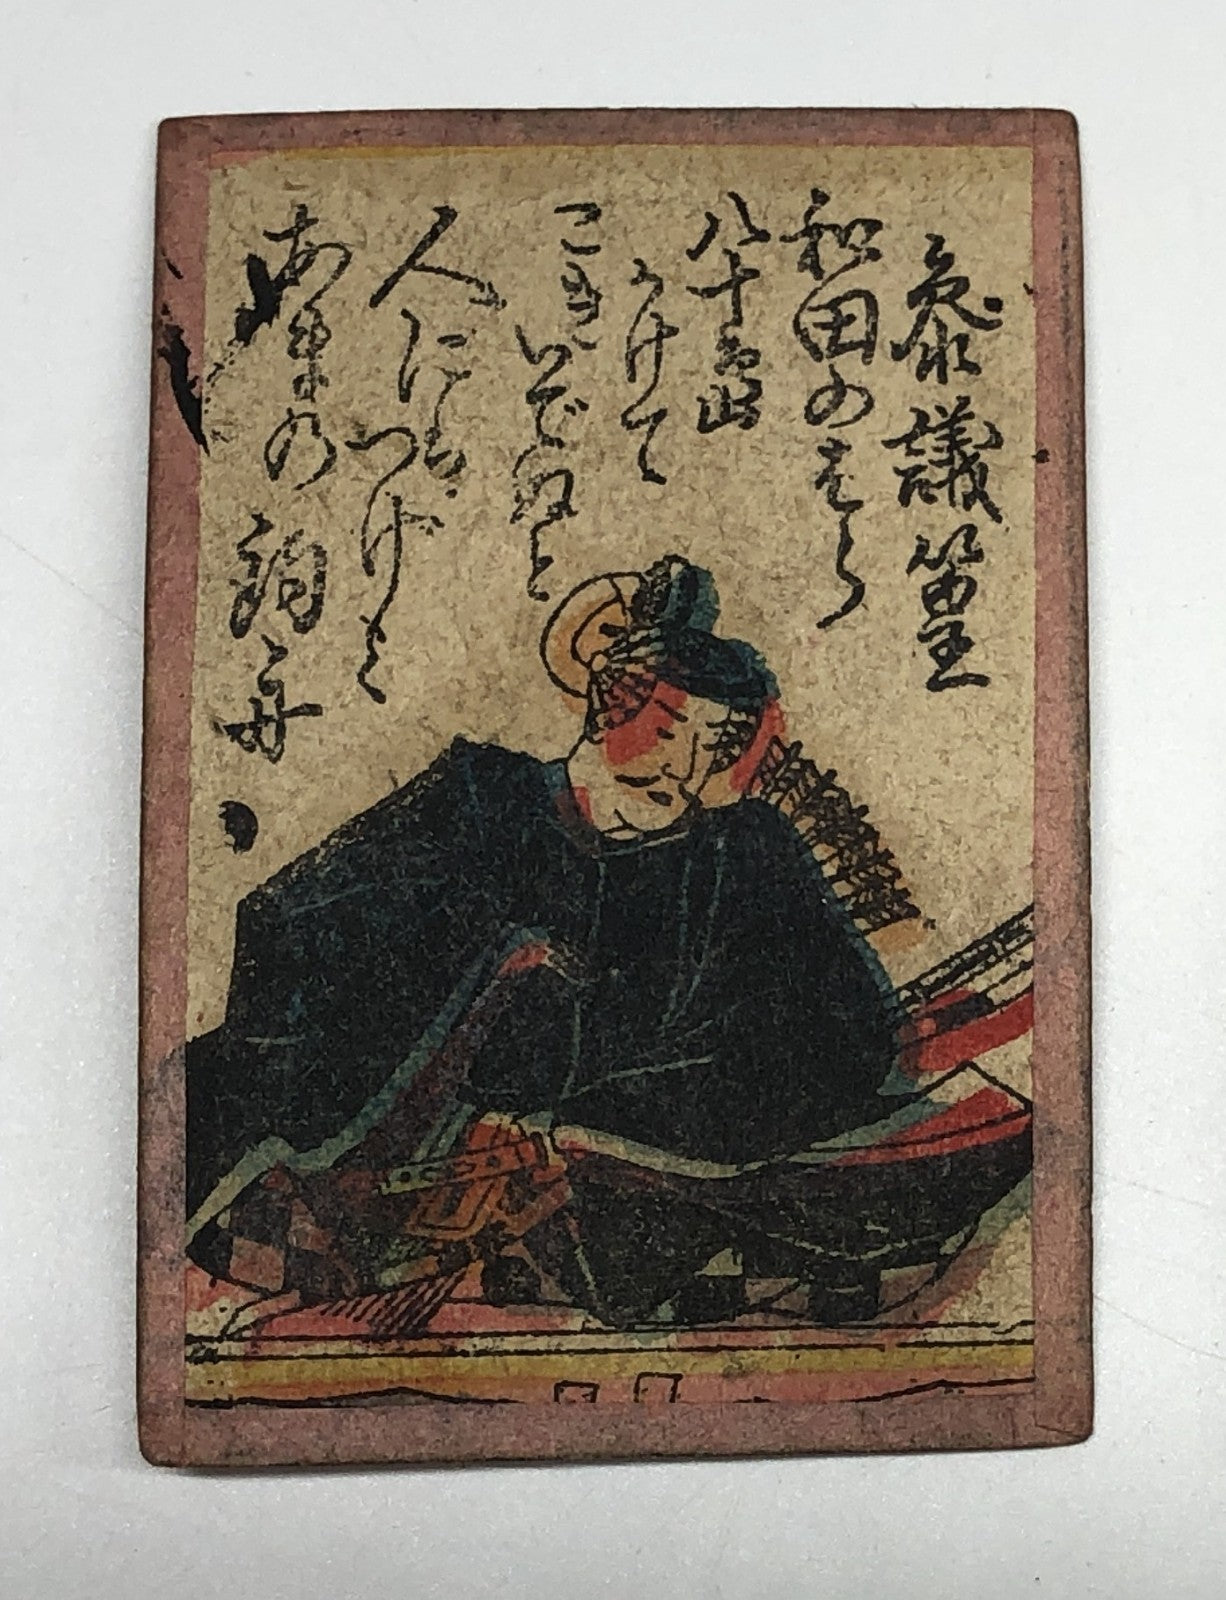 参議篁
和田のはら
八十島
かけて
こぎ
いでぬと
人には
つげよ
あまの釣ふね